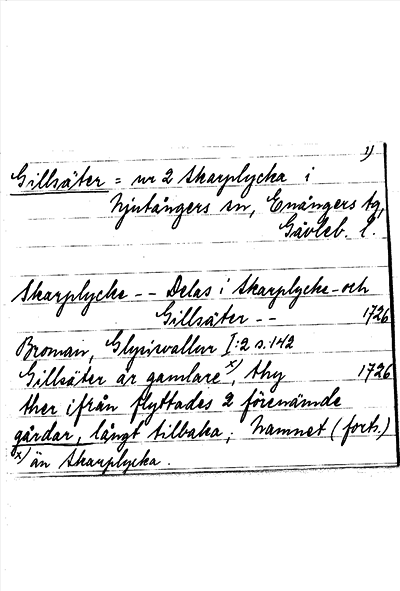 1)
Gillsäter = nr 2 Skarplycka i
Njutångers sn, Enångers tg,
Gävleb. l.
Skarplycke -- Delas i Skarplycke- och
Gillsäter -- 1726
Broman, Glysisvallur I:2 s. 142
Gillsäter är gamlare x), thy 1726
ther ifrån flyttades 2 förenämde
gårdar, långt tilbaka; Namnet (forts.)
x) än Skarplycka.